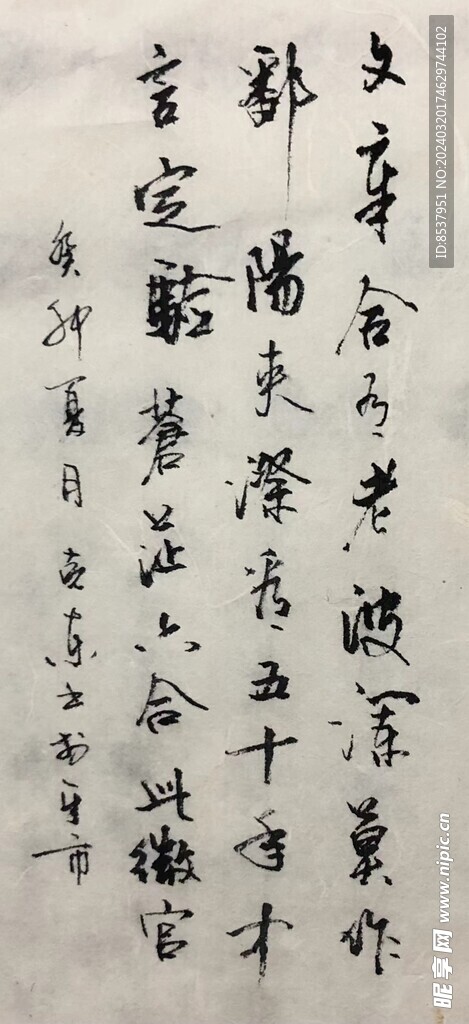 文章合有老波瀾莫作
鄱陽夾漈看五十年中
言定驗蒼茫六合此微官
癸卯夏月克东书於市
ID:8537951 NO:20240320174629744102
昵享网 www.nipic.cn